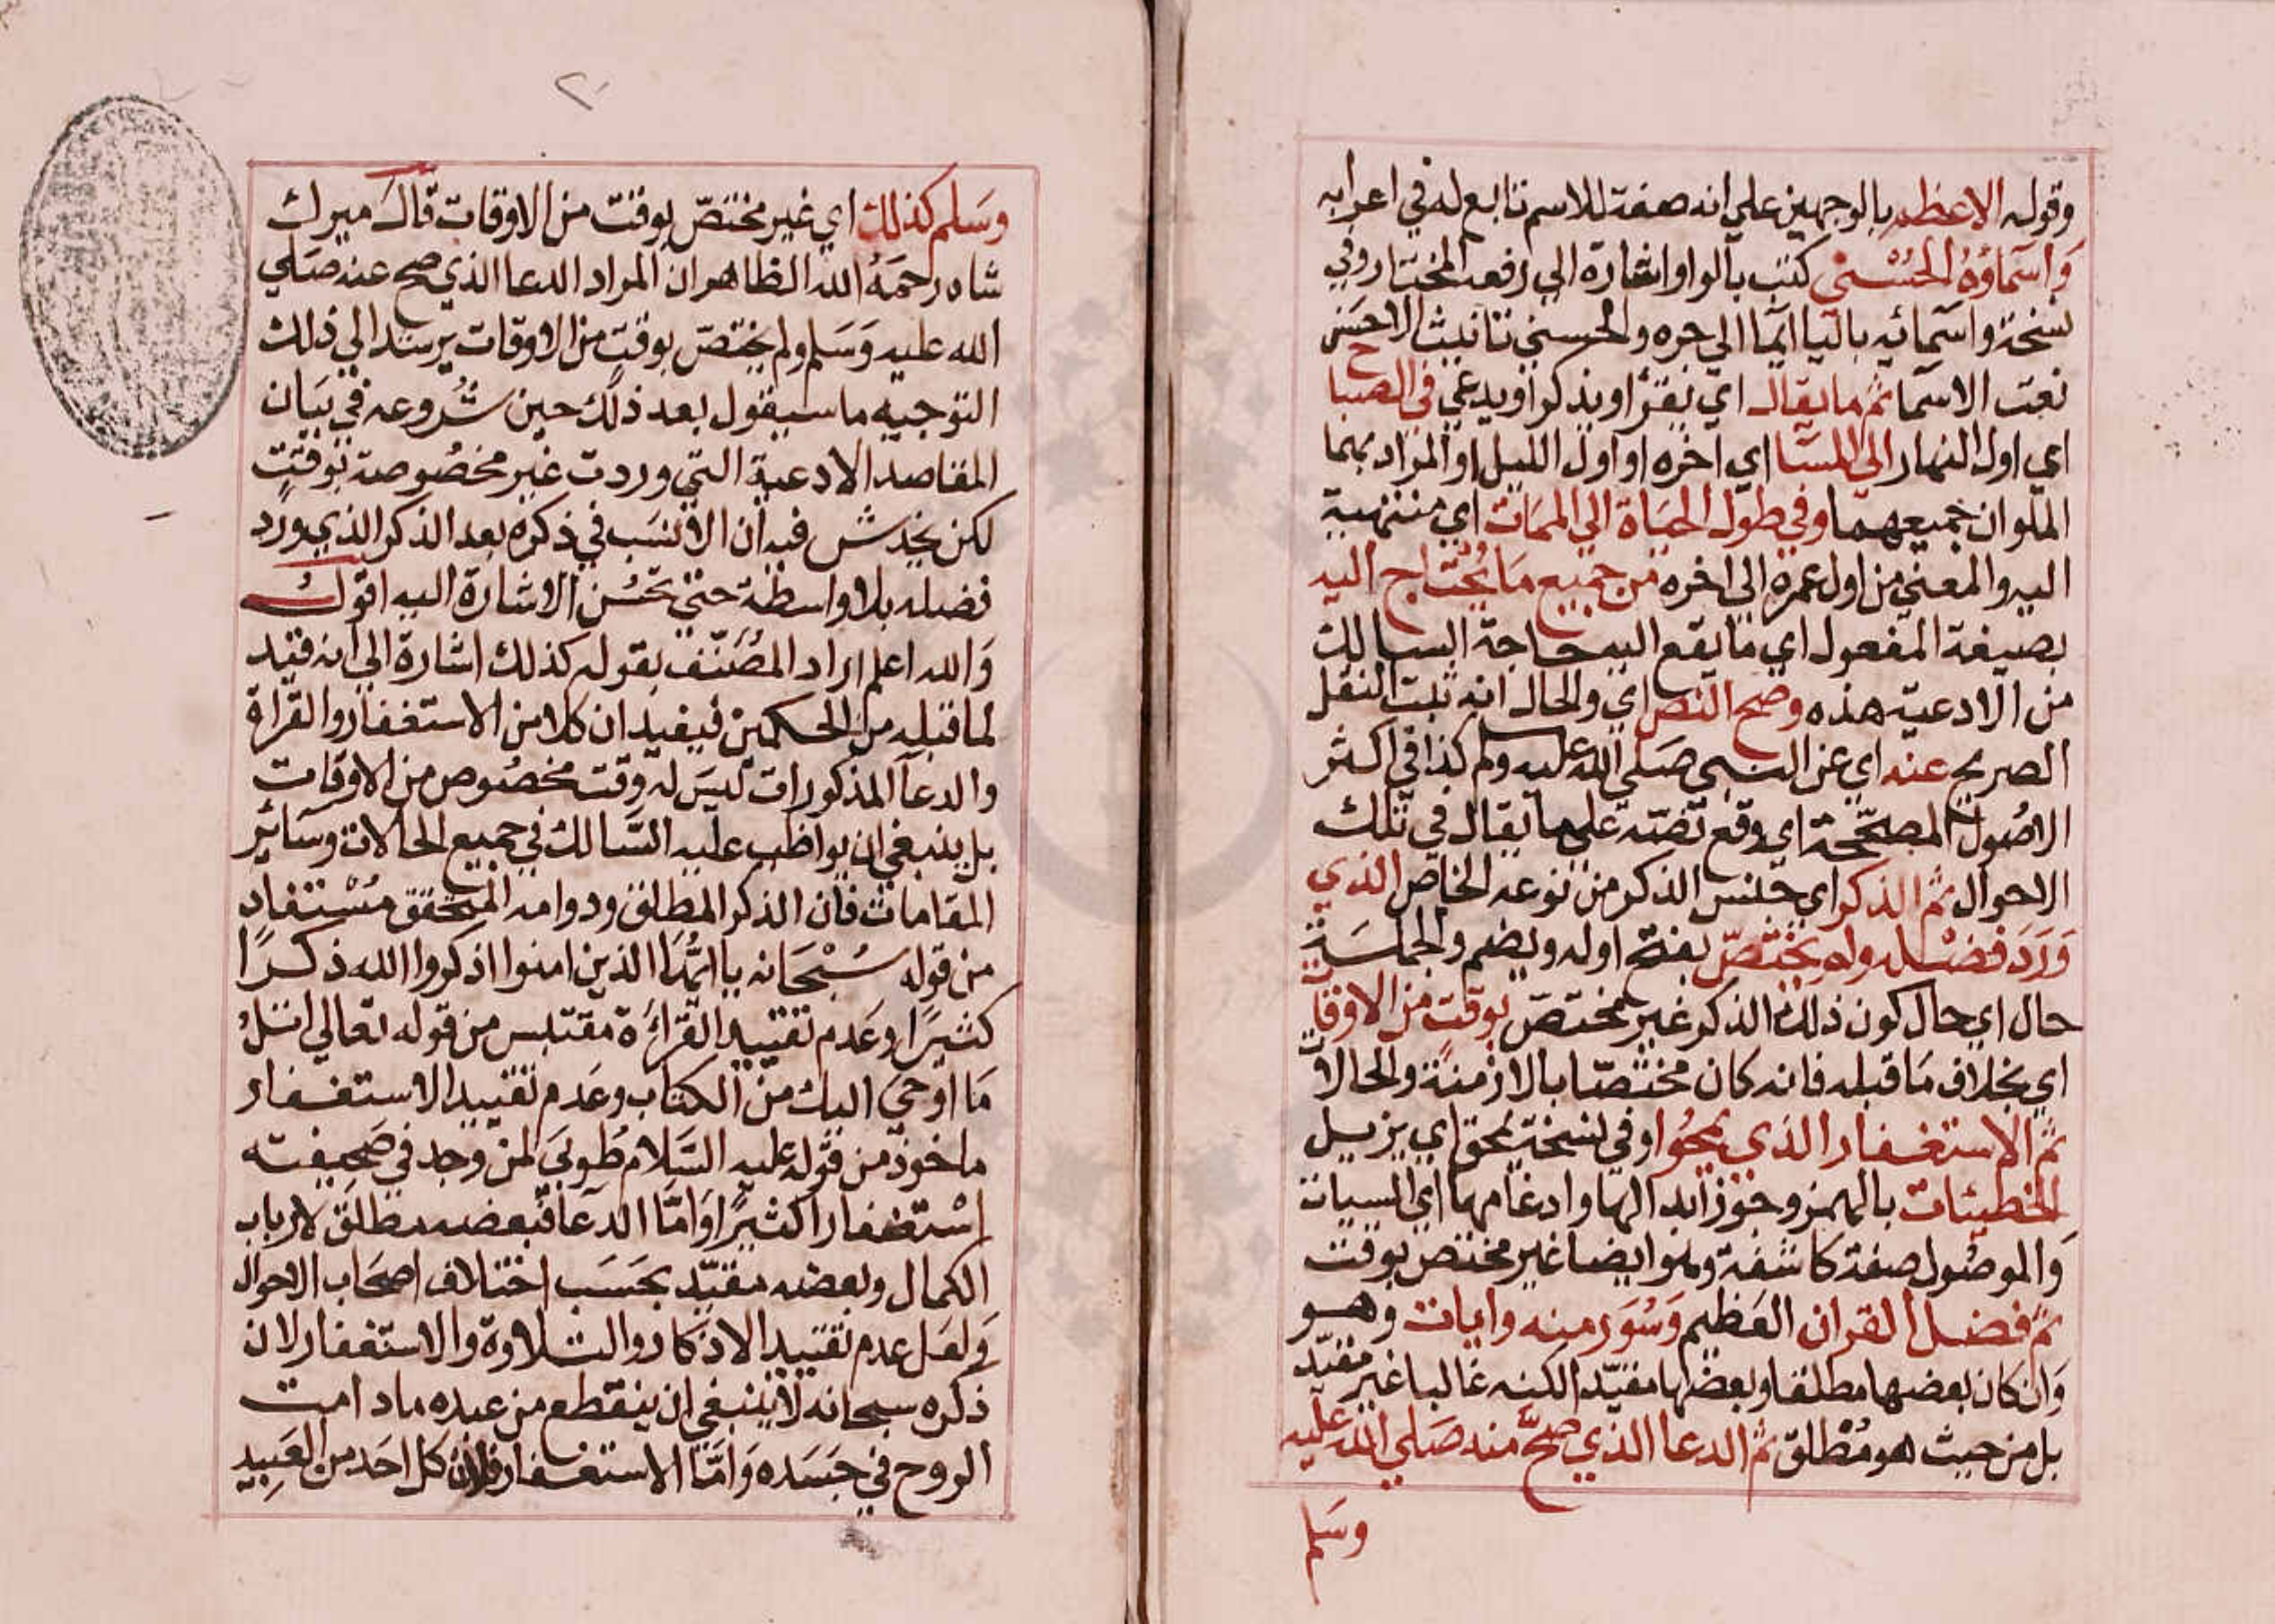 وقوله الاعظم بالوجهين علي انه صفة للاسم تابع له في اعرابه
وَاسَماؤهُ الحُسْنيٰ كتب بالواو اشارة الي رفعه المختار وفي
نسخة واسمائه باليا ايما الي جره والحسني تانيث الاحسن
نعت الاسما ثم ما يقال اي يقرأ او يذكر او يدعي في الصباح
اي اول النهار الي المسا اي اخره او اول الليل او المراد بهما
الملوان جميعهما وفي طول الحياة الي الممات اي منتهية
اليه والمعني من اول عمره الي اخره من جميع ما يُحْتاج اليه
بصيغة المفعول اي ما يقع اليه حاجة السالك
من الادعية هذه وصح النص اي والحال انه ثبت النقل
الصريح عنه اي عن النبي صَلي الله عليه وسلم كذا في اكثر
الاصول المصحّحة اي وقع نصّه علي ما يقال في تلك
الاحوال ثم الذكر اي جنس الذكر من نوعه الخاص الذي
وَرَدَ فضله ولم يختصّ بفتح اوله ويضم والجملة
حال اي حال كون ذلك الذكر غير مختصّ بوقتٍ من الاوقات
اي بخلاف مَا قبله فانه كان مختصّا بالازمنة والحالات
ثم الاستغفار الذي يمحُوا وفي نسخة يمحق اي يزيل
الخطيئات بالهمز وجوّز ابدالها وادغامها اي السيات
وَالموصُول صفة كاشفة وهو ايضا غير مختص بوقت
ثم فضل القران العَظيم وَسُوَر منه وايات وهو
وَان كان بعضها مطلقا وبعضها مقيّد الكنه غالبا غير مقيّد
بل من حيث هو مُطْلق ثم الدعا الذي صَحَّ منه صَلي الله عليه
وسَلم
٢٠
وَسَلم كذلك اي غير مختصّ بوقت من الاوقات قالَ ميرك
شاه رحمَهُ الله الظاهر ان المراد الدعا الذي صح عنه صَلي
الله عليه وَسَلم ولم يختصّ بوقتٍ من الاوقات يرسد الي ذلك
التوجيه ما سيقول بعد ذلك حين شُروعه في بيَان
المقاصد الادعية التي وردت غير مخصُوصة بوقتٍ
لكن يخدش فيه ان الانسَب في ذكره بعد الذكر الذي ورَد
فضله بلا واسطة حتي تحسُن الاشارة اليه اقول
وَالله اعلم اراد المصَنّف بقوله كذلك اشارة الي انه قيد
لما قبله من الحكمين فيفيد ان كلا من الاستغفار والقراة
والدعا المذكورات ليسَ له وقت مخصُوص من الاوقات
بل ينبغي ان يواظب عليه السَّالك في جميع الحالات وسَائر
المقامات فان الذكر المطلق ودوامه المتحقق مُسْتفاد
من قوله سُبْحَانه يا ايّهَا الذين امنوا اذكروا الله ذكرًا
كثيرًا وعَدم تقييد القراءَة مقتبس من قوله تعالي اتلُ
مَا اوحيَ اليك من الكتاب وعَدم تقييد الاستغفار
ماخوذ من قوله عليه السَلام طوبَي لمن وجد في صَحيفته
اسْتغفارا كثيرًا وَامّا الدعَا فبعضه مطلق لارباب
الكمال وبعضه مقيّد بحَسَب اختلاف اصحَاب الاحوال
وَلعَل عدم تقييد الاذكار والتلاوة والاستغفار لان
ذكره سبحانه لا ينبغي ان ينقطع من عبده ما دامت
الروح في جسَده وَامّا الاستغفار فلان كل احَد من العَبيد